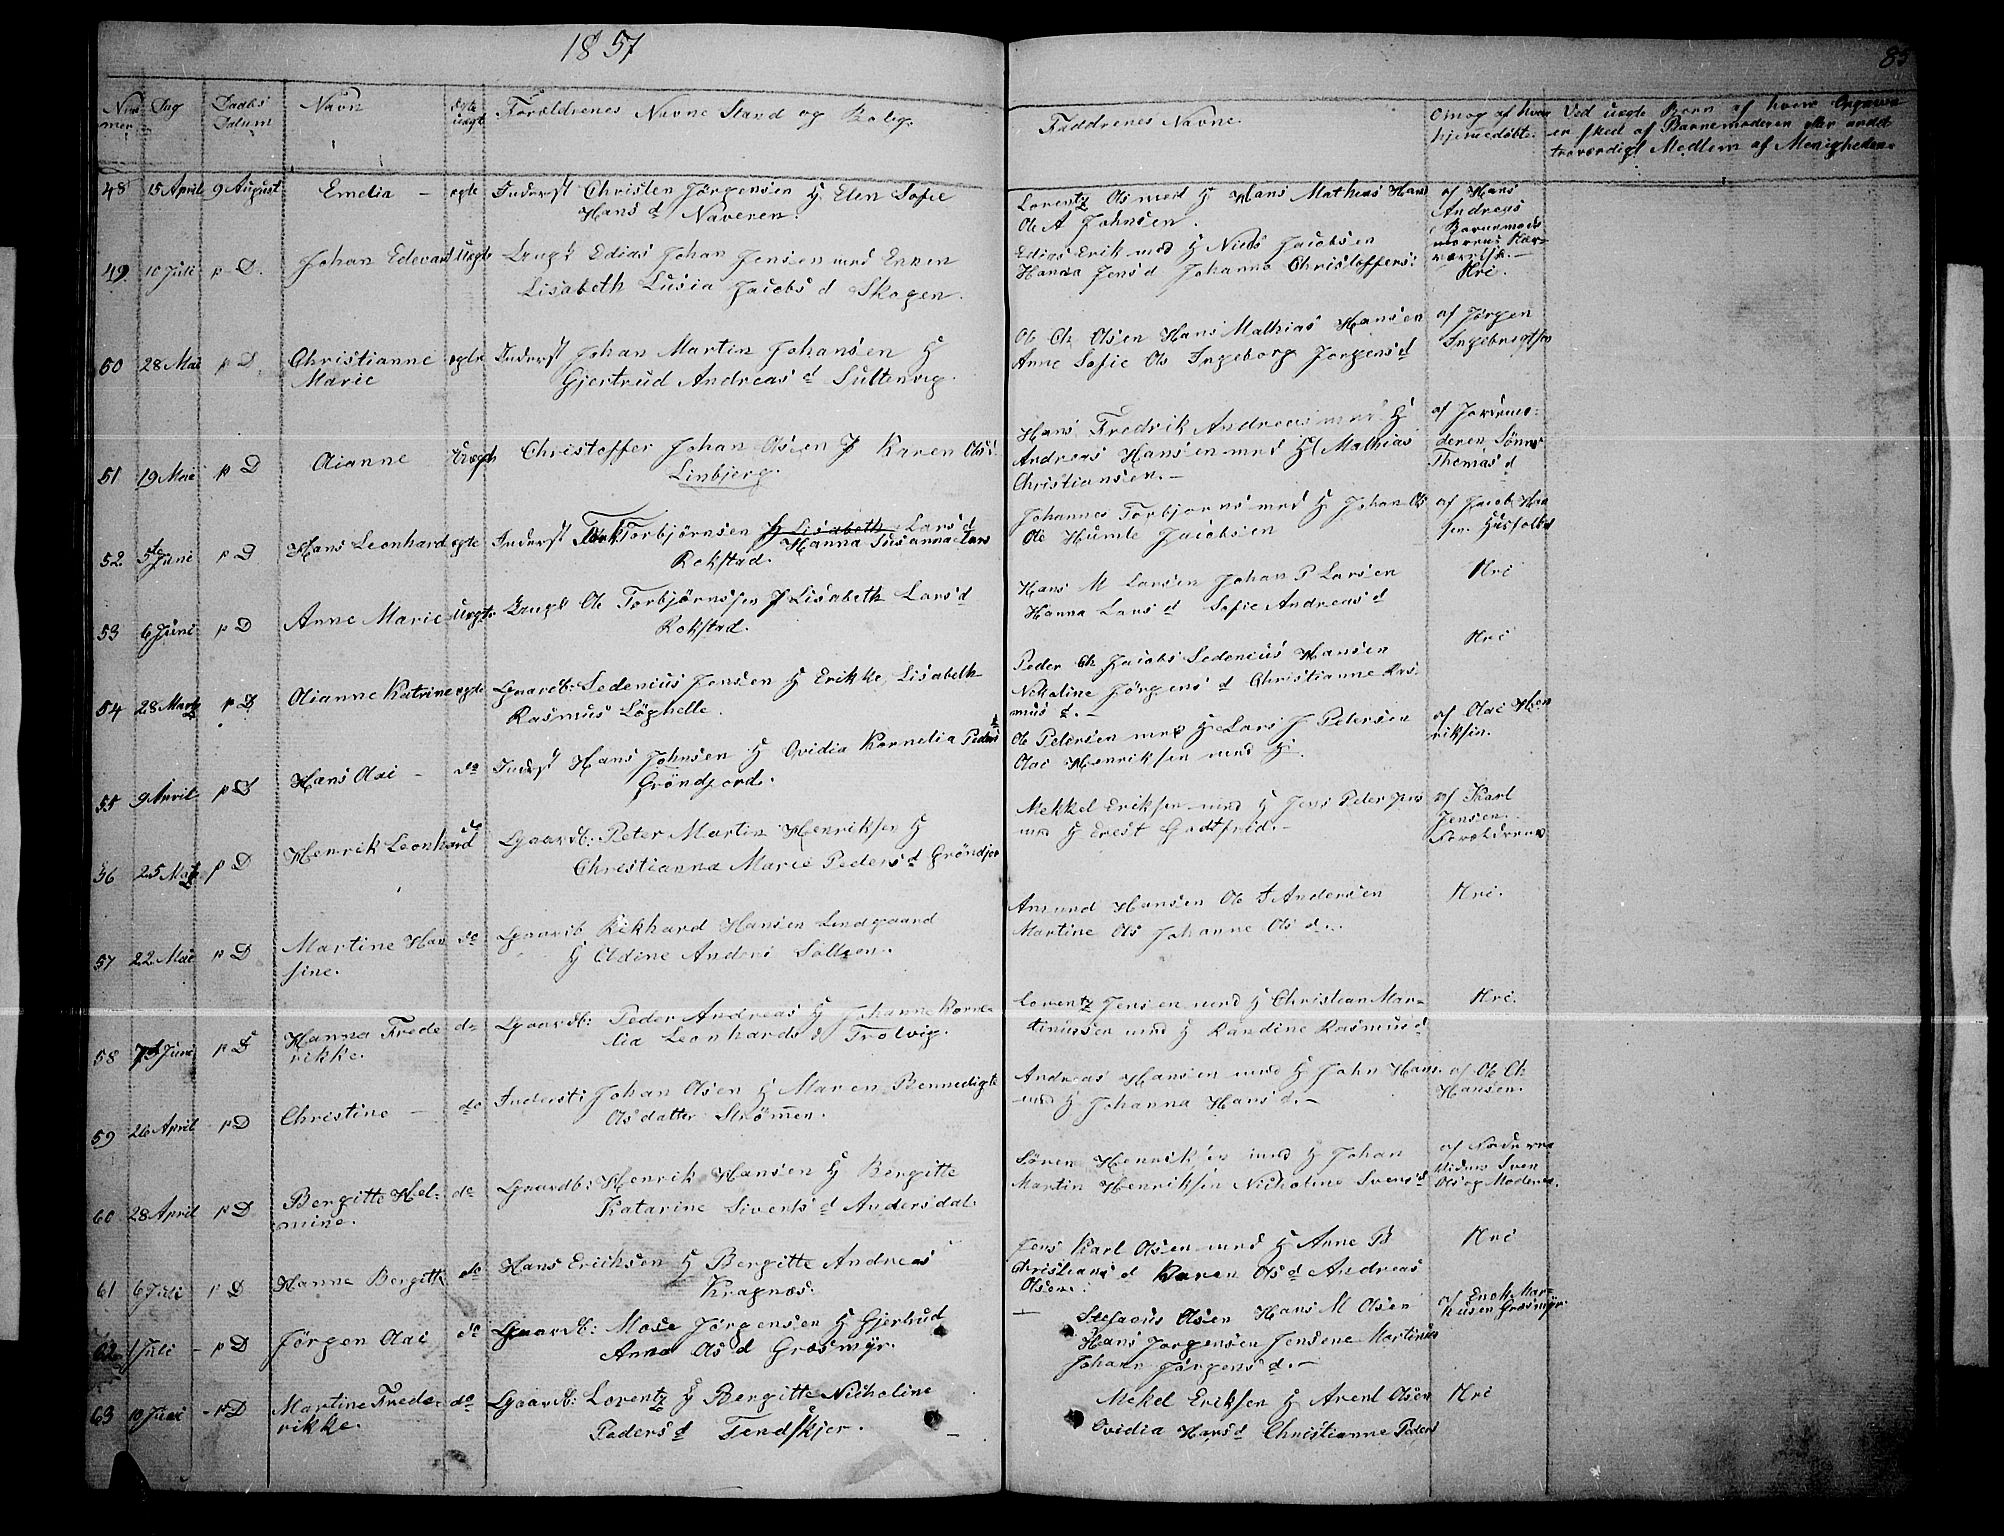 1857
85
Num
mer
Dag
Daabs
Datum
Navn
ægte
uægte
Forældrenes Navne Stand og Bolig.
Faddrenes Navne.
Om og af hvem
hjemedøbt.
Ved uægte Børn af hvem Opgaven
er skeet af Barnemoderen eller andet
troværdigt Medlem af Menigheden.
48 15 April 9 August Emelia - egte Inderst Christen Jørgensen H Elen Sofie
Hans d Naveren.
Lorentz Ols med H Hans Mathias Hans
Ole A Johnsen.
af Hans
Andreas
49 10 Juli p D. Johan Edevard Uegte Ungk Edias Johan Jensen med Enken
Lisabeth Lusia Jacobs d Skogen.
Edias Erik med H Niels Jacobsen
Hanna Jens d Johanna Christoffers:
Kri.
50 28 Mai p D. Christianne
Marie
egte Inderst Johan Martin Johansen H
Gjertrud Andreas d Sultenvig.
Ole Ch Olsen Hans Mathias Hansen
Anne Sofie Ols Ingeborg Jørgens d
af Jørgen
Ingebregtsen
51 19 Mai p D Aianne Uægte Christoffer Johan Olsen P Karen Ols:
Linbjerg.
Hans Fredrik Andreas med H
Andreas Hansen med H Mathias
Christiansen. -
af Jordemo-
deren Sønne
Thomas d
52 5te Juni p D Hans Leonhard egte Inderst Torbjørnsen H Lisabeth Lars d
Hanna Susanna Lars
Rokstad.
Johannes Torbjørns med H Johan Ols
Ole Humle Jacobsen
af Jacob Han
sen Husfolket
53 6 Juni p D Anne Marie Uegte Ungk Ole Torbjørnsen P Lisabeth Lars d
Rokstad.
Hans M Larsen Johan P Larsen
Hanna Lars d Sofie Andreas d
Kri
54 28 Marts p D Aianne Katrine egte Gaardb: Sedenius Jensen H Erikke Lisabeth
Rasmus Løghelle.
Peder Ch Jacobs Sedenius Hansen
Nikoline Jørgens d Christianne Ras-
mus d. -
Kri
55 9 April p D Hans Oai - do Inderst Hans Johnsen H Ovidia Kornelia Peders d
Grøndjord.
Ole Petersen med H Lars J Petersen
Oai Henriksen med H.
af Oai Hen
riksen.
56 25 Marts p D Henrik Leonhard do Gaardb: Peter Martin Henriksen H
Christianna Marie Peders d Grøndjor
Mekkel Eriksen med H Jens Peter Jens
med H Erest Godtfrid. -
af Karl
Jensen.
Forældrene
57 22 Mai p D Martine Han
sine.
do Gaardb Rikhard Hansen Lindgaard
H Oldine Anders Sølsen.
Amund Hansen Ole T Andersen
Martine Ols Johanne Ols d. -
Kri.
58 7de Juni p D Hanna Frede
rikke.
do Gaardb: Peder Andreas H Johanne Korne-
lia Leonhards d Trolvig.
Lorentz Jensen med H Christian Mar-
tinussen med H Randine Rasmus d
Kri.
59 26 April p D Christine - do Inderst: Johan Olsen H Maren Bennedigte
Olsdatter Strømen.
Andreas Hansen med H John Hans
med H Johanna Hans d. -
af Ole Ch
Hansen.
60 28 April p D Bergitte Hel-
mine.
do Gaardb: Henrik Hansen H Bergitte
Katarine Siverts d Andersdal.
Søren Henriksen med H Johan
Martin Henriksen Nicholine Svens d
Sven
Ols og Moderen.
61 6 Juli p D Hanne Bergitte do Hans Eriksen H Bergitte Andreas
Kragnæs.
Jens Karl Olsen med H Anne B
Christians d Karen Ols d Andreas
Olsen.
Kri
62 1 Juli - p D Jørgen Oai do Gaardb: Mose Jørgensen H Gjertrud
Anna Ols d Græsmyr.
- Stefanus Olsen Hans M Olsen
Hans Jørgensen Jensene Martinus
Johan Jørgens d. -
af Enok Mar-
kusen Græsmyr.
63 10 Juni - p D Martine Frede-
rikke.
do Gaardb: Lorentz H Bergitte Nicholine
Peders d Tendskjer. -
Mekel Eriksen H Arent Olsen
Ovidia Hans d Christianne Peders
Kri